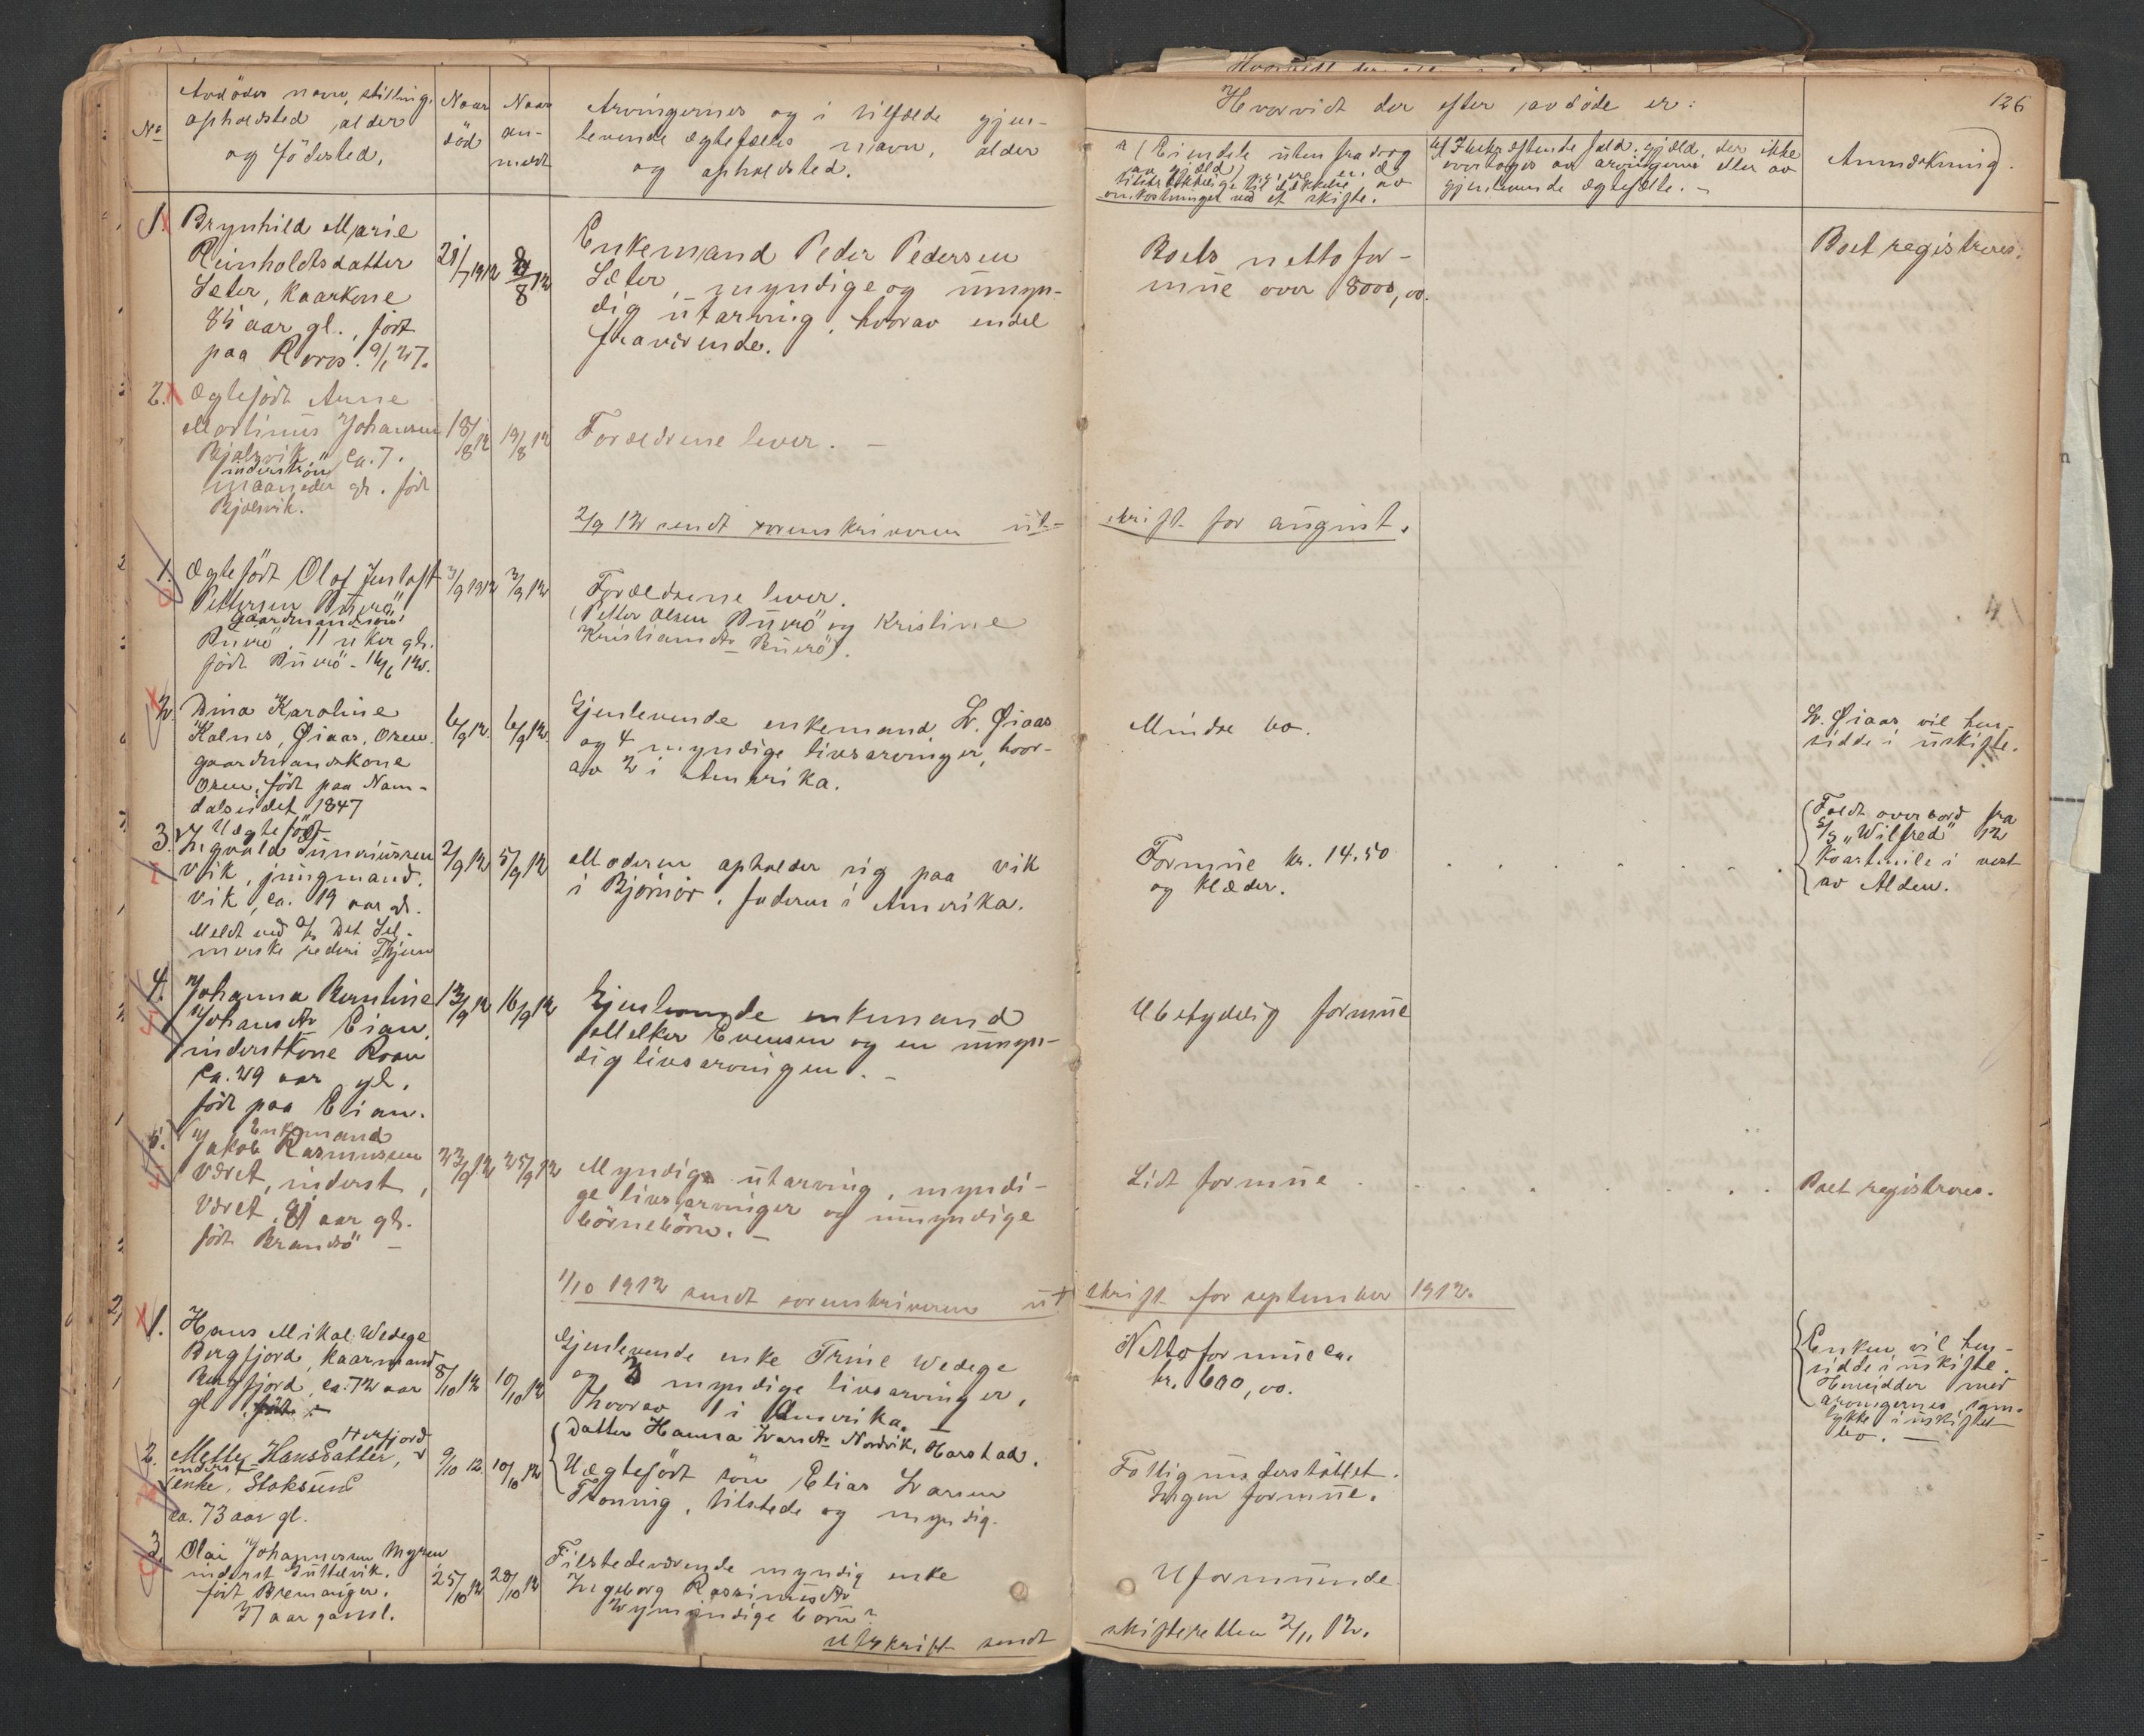 126
No
Avdödes navn, stilling,
opholdsted, alder
og födested.
Naar
död
Naar
an-
meldt
Arvingernes og i tilfælde gjen-
levende ægtefælles navn, alder
og opholdsted.
Hvorvidt der efter avdöde er:
a) Eiendele uten fradrag
av gjæld
tilstrækkelige til dækkelse av
omkostninger ved et skifte.
gjæld, der ikke
overtages av arvingerne eller av
gjenlevende ægtefælle. -
Anmerkning.
1.
Brynhild Marie
Reinholdtsdatter
Sæter, kaarkone
85 aar gl., født
paa Roros. 9/1 27.
21/7 1912
8/8 12
Enkemand Peder Pedersen
Sæter, myndige og umyn-
dig utarving, hvorav endel
fraværende.
Boets netto for-
mue over 8000,00.
Boet registreres.
2.
Ægtefödt Arne
Martinus Johansen
Bjølsvik, ca. 7
inderstsön
maaneder gl. født
Bjølsvik.
18/8 12
19/8 12
Forældrene lever. -
2/9 12 sendt sorenskriveren ut-
skrift for august.
1.
Ægtefödt Olaf Jentoft
Pettersen Buerö
gaardmandssön
Buerö, 11 uker gl.
födt Buerö - 14/6 12.
3/9 1912
3/9 12
Forældrene lever.
(Petter Olsen Buerö og Kristine
Kristiansdtr Buerö).
2.
Dina Karoline
Kalnes, Øiaas, Osen
gaardmandskone
Osen, født paa Nam-
dalseidet 1847
6/9 12.
6/9 12.
Gjenlevende enkemand L. Øiaas
og 4 myndige livsarvinger, hvor-
av 2 i Amerika.
Mindre bo.
L. Øiaas vil hen-
sidde i uskifte.
3.
Uægtefödt
Ingvald Unriussen
Vik, jungmand.
Vik, ca. 19 aar gl.
Meldt ved A/S Det Sel-
merske rederi Thjem
2/9 12
5/9 12
Moderen opholder sig paa Vik
i Bjørnör, faderen i Amerika.
Formue kr. 14.50
og klæder.
Faldt overbord fra
S/S "Wilfred" 12
kvartmile i vest
av Alden.
4.
Johanna Berntine
Johansdtr Eian
inderstkone Roan
ca. 29 aar gl.
født paa Eian.
13/9 12
16/9 12
Gjenlevende enkemand
Melker Evensen og en umyn-
dig livsarvingen. -
Ubetydelig formue
5.
Enkemand
Jakob Rasmussen
Været, inderst,
Været, 81 aar gl.
født Brandsö -
23/9 12
25/9 12
Myndige utarving, myndi-
ge livsarvinger og umyndige
börnebörn. -
Lidt formue
Boet registreres.
1/10 1912 sendt sorenskriveren ut
skrift for september 1912.
1.
Hans Mikal Wedege
Bergfjord, kaarmand
Bergfjord, ca. 72 aar
gl.
8/10 12
10/10 12
Gjenlevende enke Trine Wedege
og 3 myndige livsarvinger,
hvorav 1 i Amerika.
Nettoformue ca.
kr. 600,00.
Enken vil hen-
sidde i uskifte.
Hensidder med
arvingernes sam-
tykke i uskiftet
bo. -
2.
Herfjord
Mette Hansdatter,
inderst
enke, Stoksund
ca. 73 aar gl.
9/10 12
10/10 12
Datter Hanna Larsdtr Nordvik, Harstad.
Uægtefødt sön Elias Larsen
Tronning, tilstede og myndig.
Fattigunderstöttet.
Ingen formue.
3.
Olai Johannessen Myren
inderst Suttelvik.
født Bremanger.
37 aar gaml.
25/10 12
28/10 12
Tilstedeværende myndig enke
Ingeborg Rasmusdtr
2 umyndige börn.
Uformuende
Utskrift sendt
skifteretten 2/11 12.